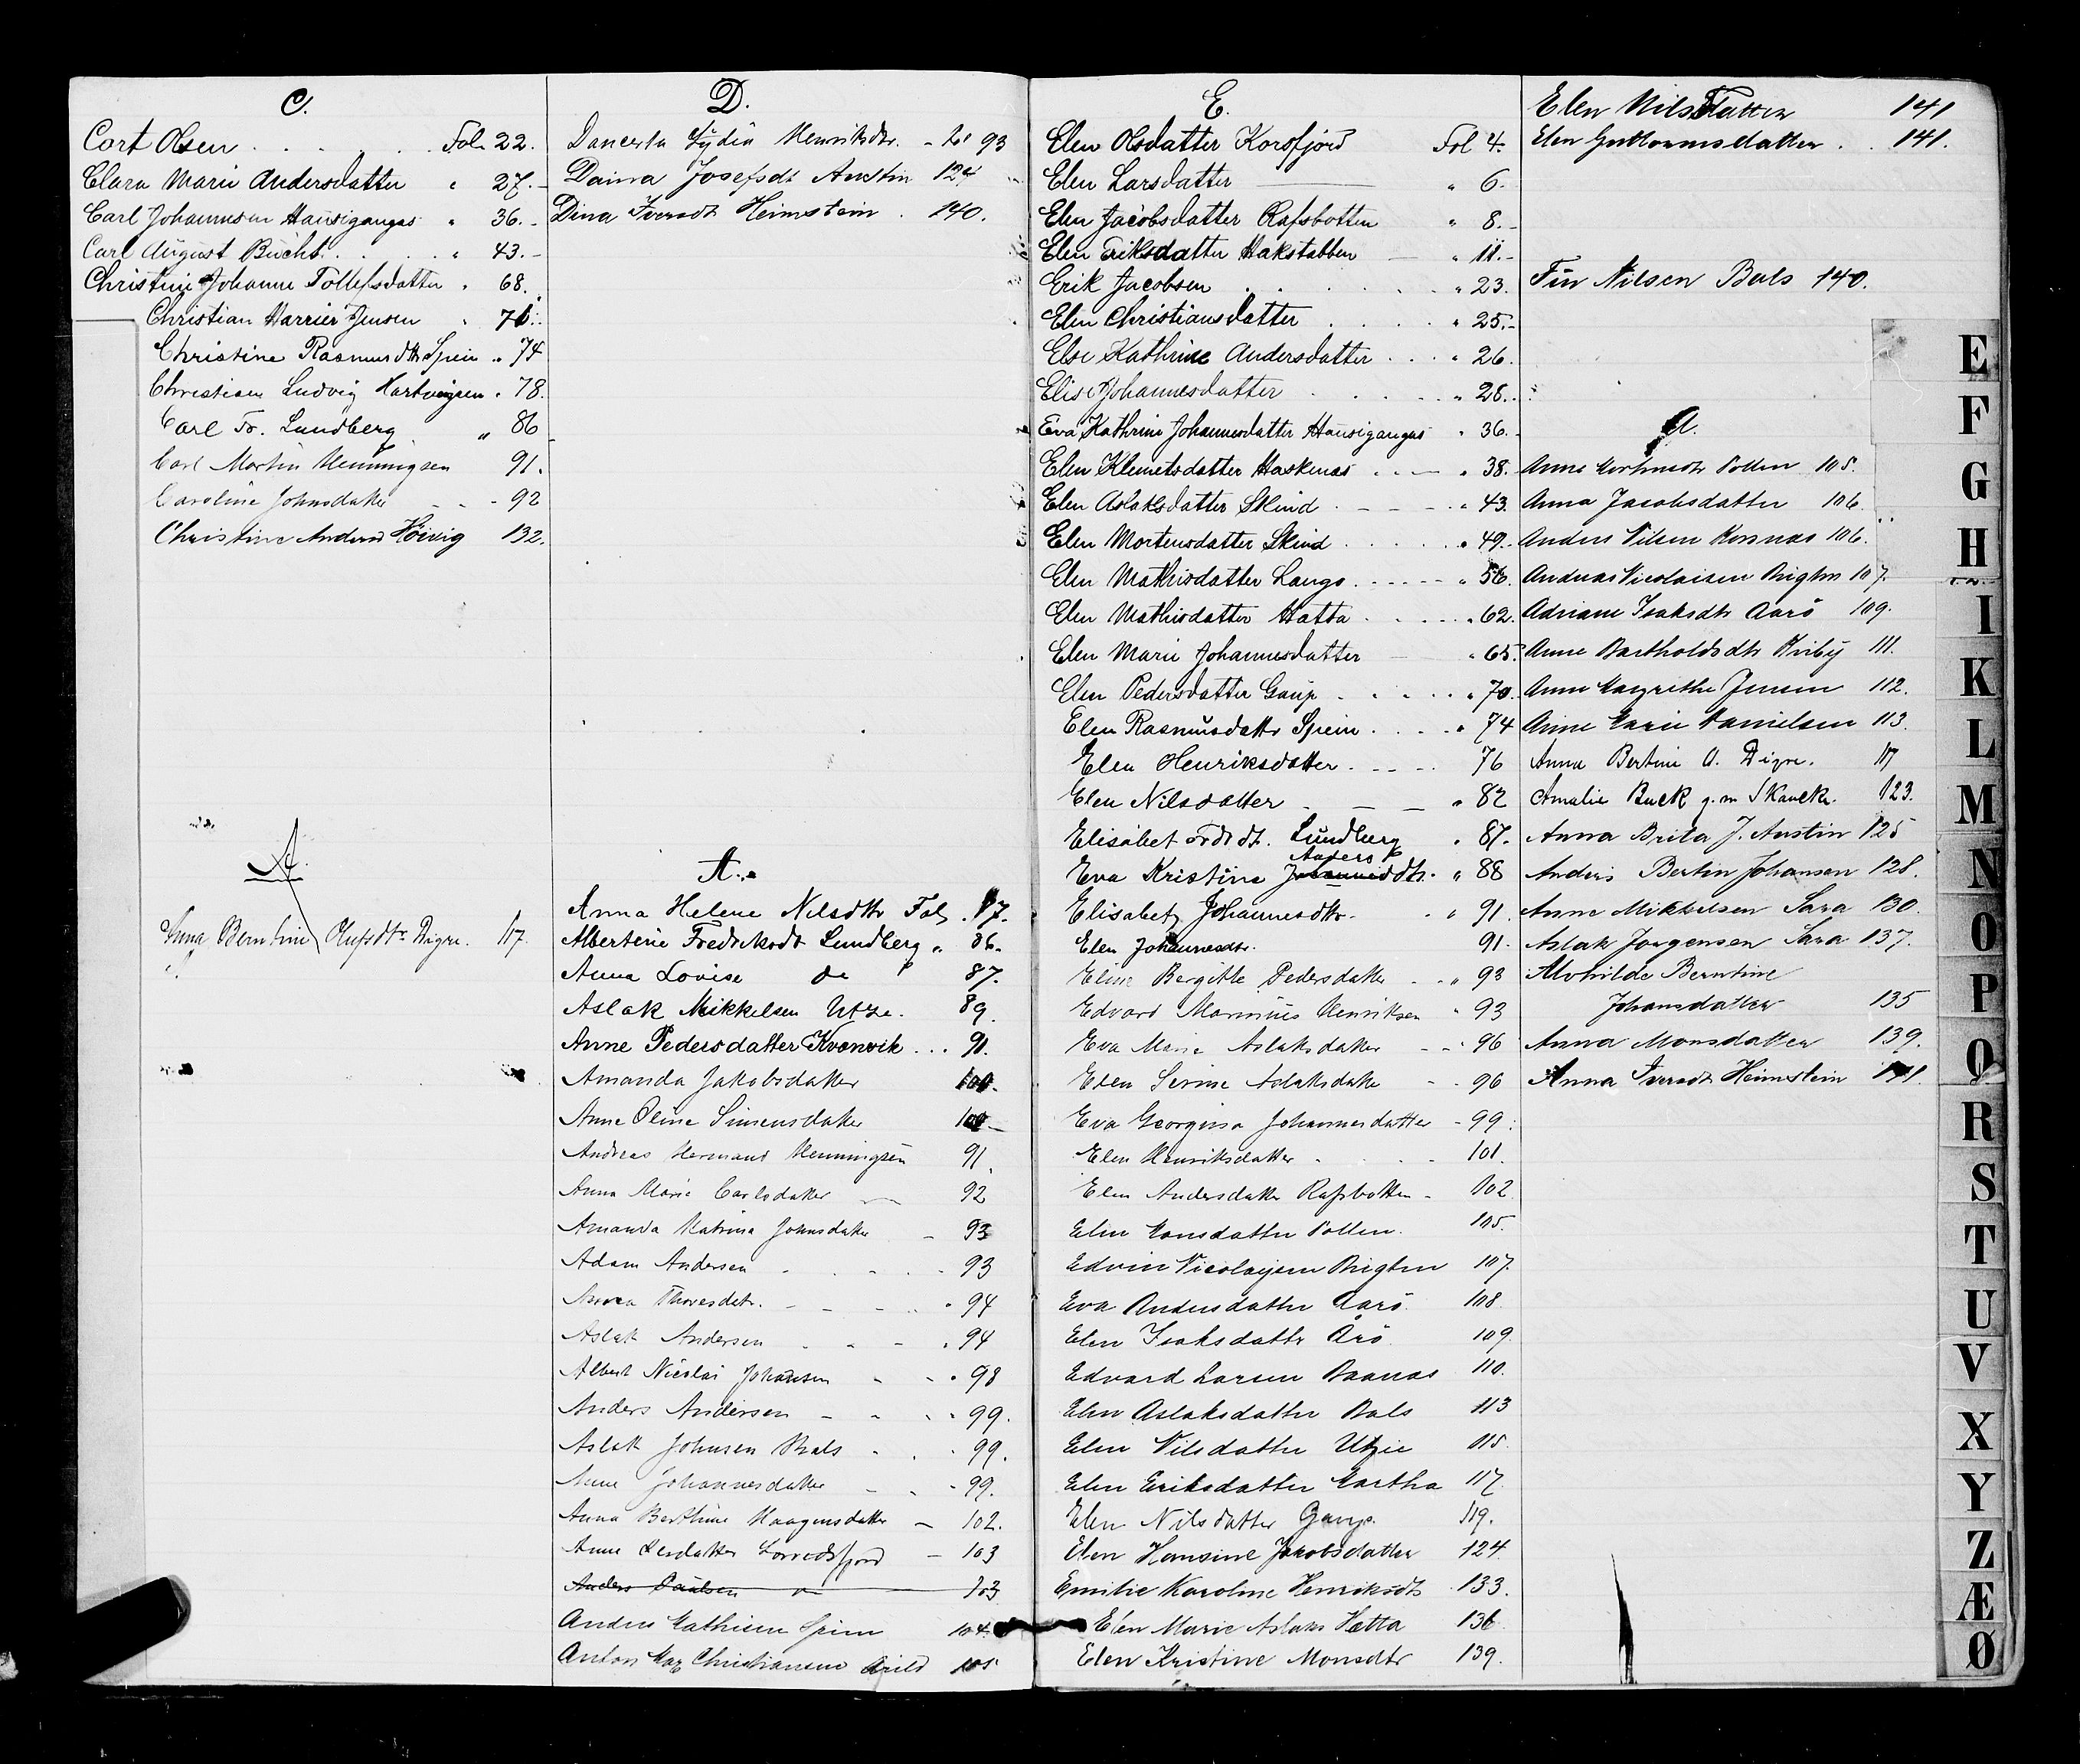 C.
Cort Olsen . . . . . . Fol. 22.
Clara Marie Andersdatter " 27.-
Carl Johannesen Hausigangas " 36.-
Carl August Bucht. . . . . " 43.-
Christine Johanne Tollefsdatter " 68.
Christian Harrier Jensen " 71.
Christine Rasmusdtr Spein " 74
Christian Ludvig Hartvigsen " 78.
Carl Fr. Lundberg " 86
Carl Martin Henningsen 91.
Caroline Johnsdatter - - 92
Christine Anders Höivig 132.
A.
Anna Berntine Olufsdtr Digre. 117.
D.
Dancerta Lydia Henriksdtr. - 93
Daina Josefsdt Austin 124
Dina Iversdtr Heimstein . 140.
A.
Anna Helene Nilsdtr Fol. 87.
Albertine Fredriksdt Lundberg " 86.
Anna Lovise do 87.
Aslak Mikkelsen Utze. 89.
Anne Pedersdatter Kvænvik ... 91.
Amanda Jakobsdatter 100.
Anne Oline Simensdatter 100
Andreas Hermans Henningsen 91.
Anna Marie Carlsdatter 92
Amanda Katrina Johnsdatter - 93
Adam Andersen - - - 93
Anna Thoresdatr. - - - 94
Aslak Andersen . - - 94
Albert Nicolai Johansen - - 98
Anders Andersen - - - 99.
Aslak Johnsen Bals - . 99.
Anne Johannesdatter - - 99.
Anna Berthine Haagensdatter - 102.
Anne Persdatter - 103
Anders Paulsen 103
Anders Mathisen Spein 104
Anton Mag Christiansen Arild 105
E.
Elen Olsdatter Korsfjord Fol 4.
Elen Larsdatter " 6.
Elen Jacobsdatter Rafsbotten " 8.-
Elen Eriksdatter Hakstabben " 11.-
Erik Jacobsen . . . . " 23.
Elen Christiansdatter . . . . " 25.-
Else Kathrine Andersdatter . . . " 26.
Elise Johannesdatter . . . . " 28.
Eva Kathrine Johannesdatter Hausigangas " 36.-
Elen Klemetsdatter Haskenas . . - " 38.
Elen Aslaksdatter Skind - - - - " 43.
Elen Mortensdatter Skind . . . . " 49.-
Elen Mathisdatter Lango. - - - - " 56.
Elen Mathisdatter Hatta . - . - " 62.
Elen Marie Johannesdatter " 65.
Elen Pedersdatter Gaup . . . . " 70.
Elen Rasmusdattr Spein . . . . " 74
Elen Henriksdatter. - - - . 76
Elen Nilsdatter - - - " 82
Elisabet Frdrdt. Lundberg " 87.
Anders
Eva Kristine Johannesdtr. " 88
Elisabet Johannesdtr. . " 91.
Elen Johannesdtr. 91.
Eline Bergitte Pedersdatter - - " 93
Edvard Marinius Henriksen " 93
Eva Marie Aslaksdatter - - " 96
Elen Serine Aslaksdatter - - 96
Eva Georgina Johannesdatter - 99.
Elen Henriksdatter - . - 101.
Elen Andersdatter Rafsbotten - 102.
Elen Monsdatter Pollen. 105.
Edvin Nicolaysen Brigten 107.
Eva Andersdatter Aarö. 108
Elen Isaksdattr Årö 109.
Edvard Larsen Baanas 110.
Elen Aslaksdatter Bals 113
Elen Nilsdatter Utzie 115.
Elen Eriksdatter Hartha 117.
Elen Nilsdatter Gaup. 119.
Elen Hansine Jakobsdatter 124.
Emilie Karoline Henriksdtr . 133.
Elen Marie Aslaks Hatta 136
Elen Kristine Monsdtr 139.
Elen Nilsdatter 141
Elen Guttormsdatter . . 141.
Fin Nilsen Bals 140.
A.
Anne Mortensdtr Pollen 105.
Anna Jacobsdatter 106.
Anders Nilsen Korsnas 106.
Andreas Nicolaisen Brigten 107.
Adriane Isaksdtr Aarö 109.
Anne Bartholdsdtr Kviby 111.
Anne Margrethe Jensen 112.
Anne Marie Danielsen 113.
Anna Bertine O. Digre. 117
Amalie Buck g.m Skancke. 123.
Anna Brita J. Austin 125
Anders Bertin Johansen 128.
Anne Mikkelsen Sara 130.
Aslak Jørgensen Sara 137.
Alvhilde Berntine
Johansdatter 135
Anna Monsdatter 139.
Anna Iversdtr Heimstein 141.
E
F
G
H
I
K
L
M
N
O
P
Q
R
S
T
U
V
X
Y
Z
Æ
Ø